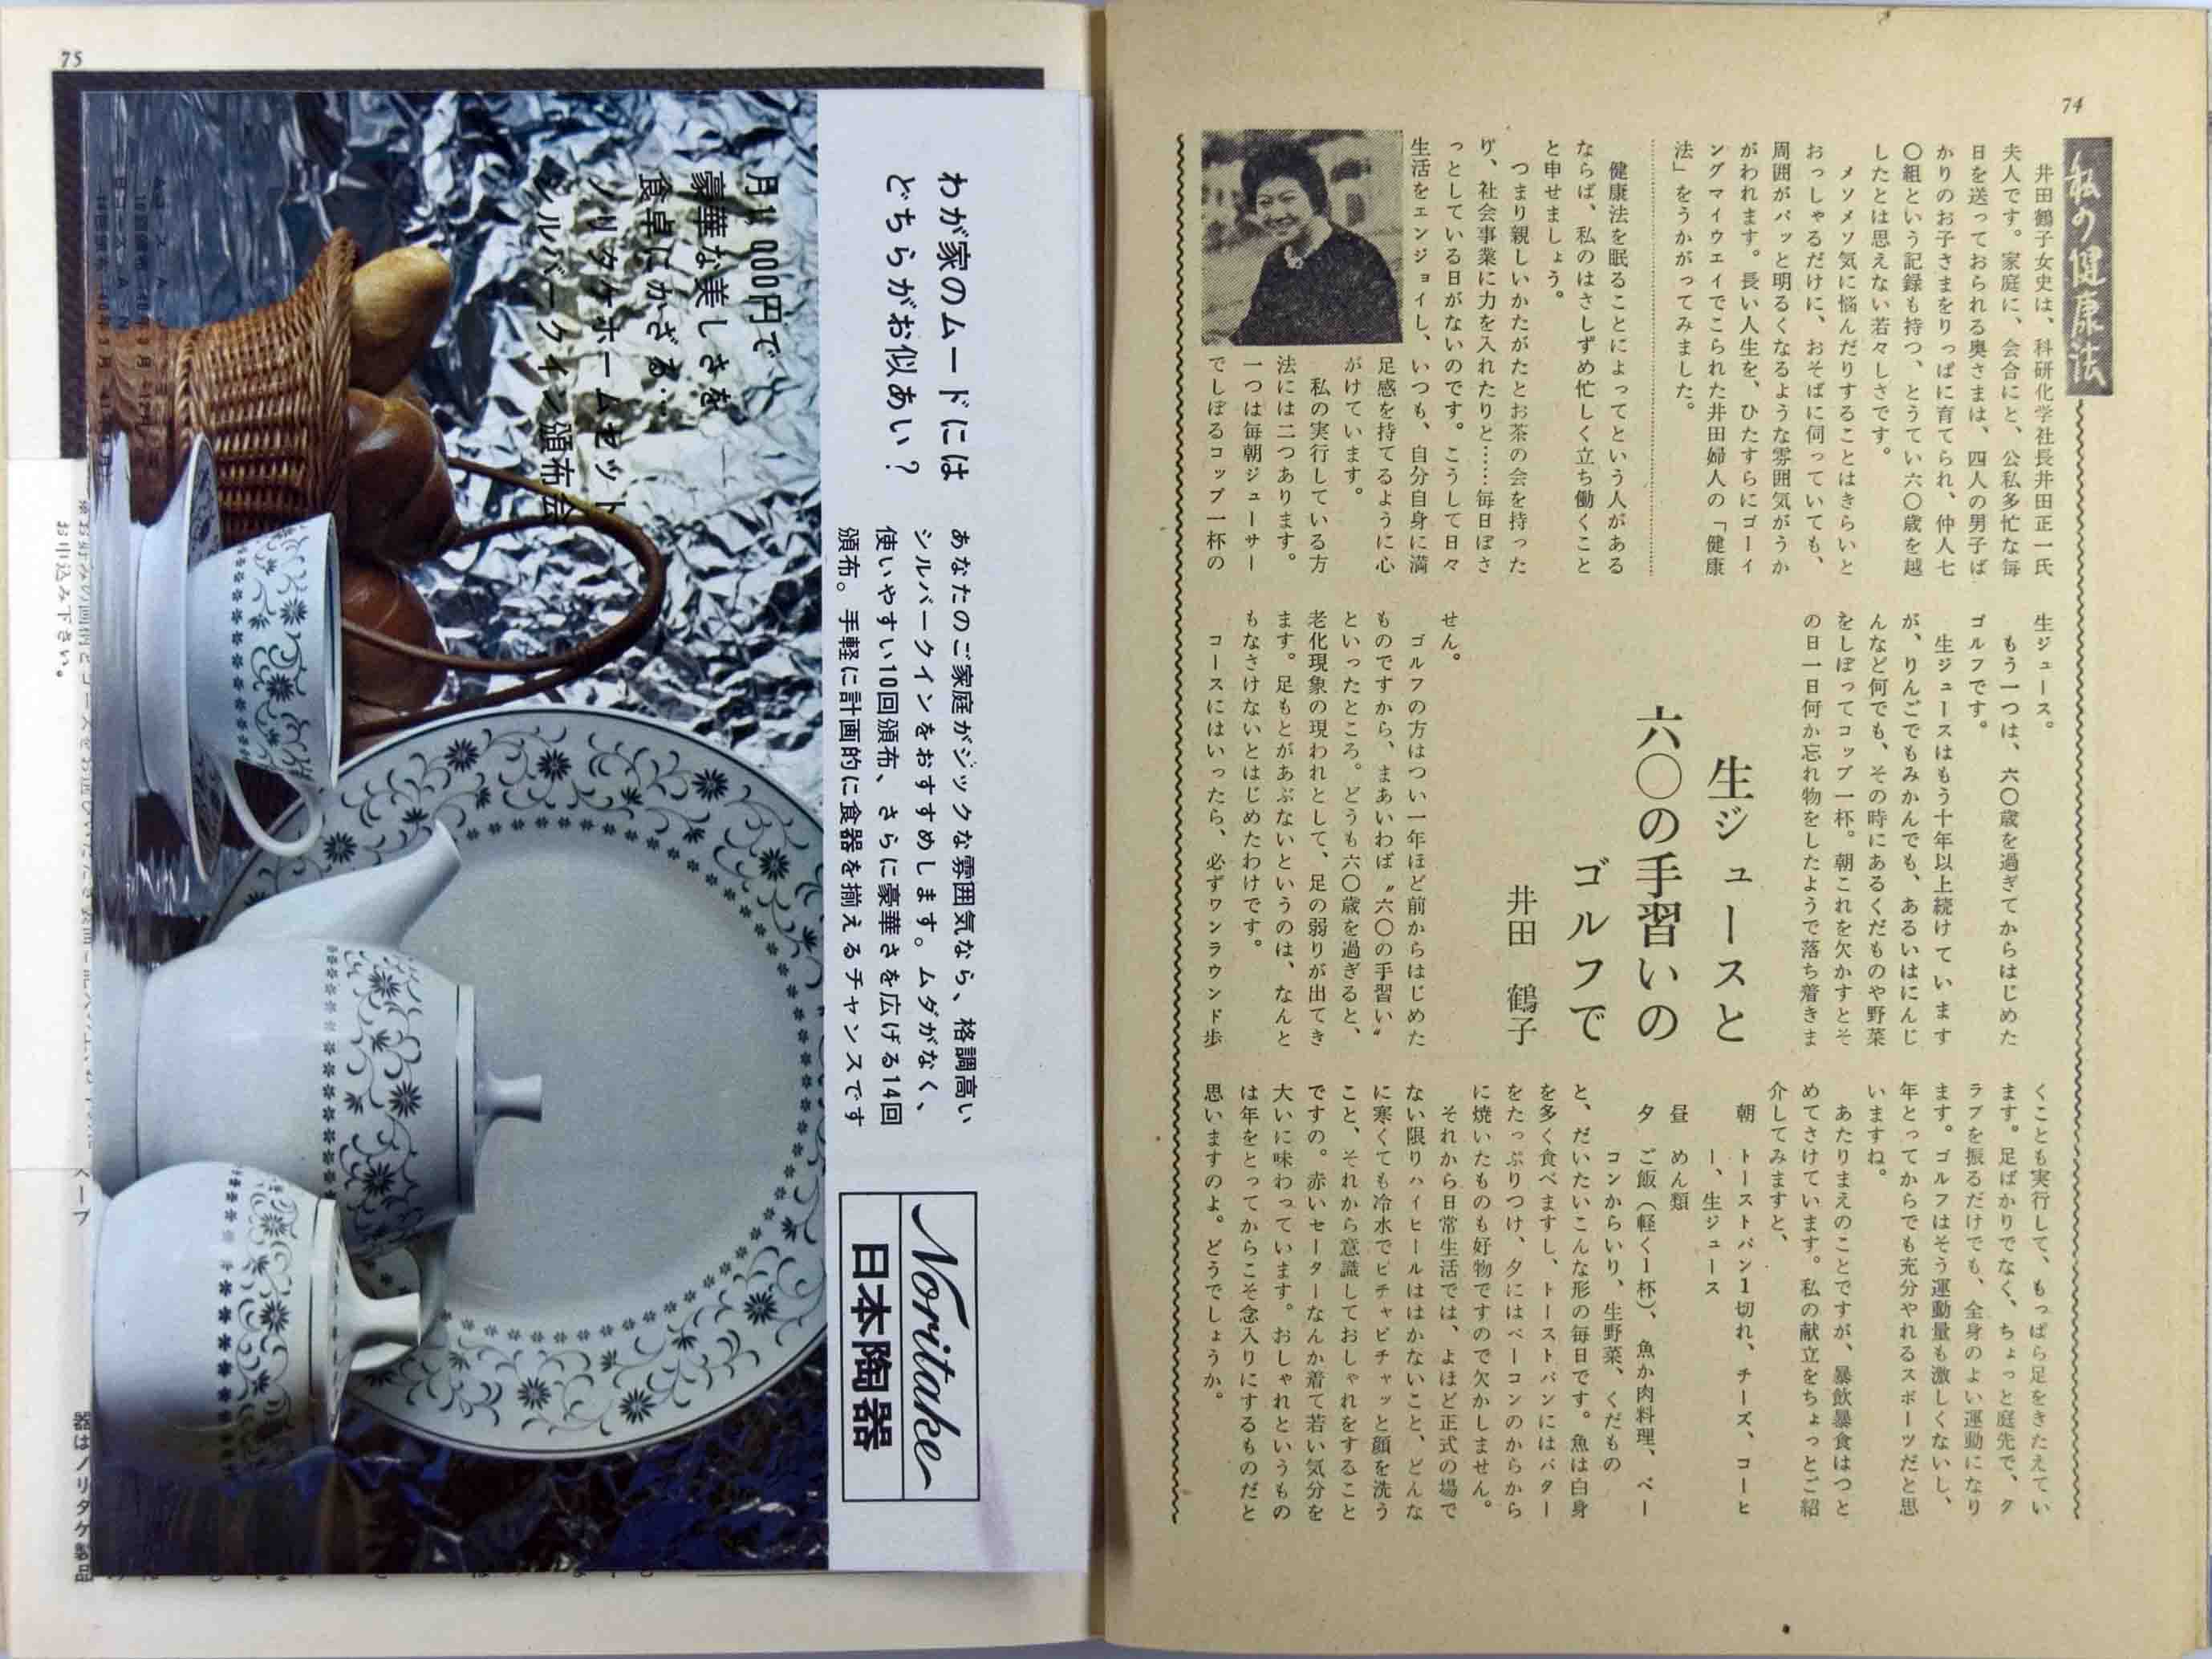 74
私の健康法
井田鶴子女史は、科研化学社長井田正一氏
夫人です。家庭に、会合にと、公私多忙な毎
日を送っておられる奥さまは、四人の男子ば
かりのお子さまをりっぱに育てられ、仲人七
〇組という記録も持つ、とうてい六〇歳を越
したとは思えない若々しさです。
メソメソ気に悩んだりすることはきらいと
おっしゃるだけに、おそばに伺っていても、
周囲がパッと明るくなるような雰囲気がうか
がわれます。長い人生を、ひたすらにゴーイ
ングマイウエイでこられた井田婦人の「健康
法」をうかがってみました。
健康法を眠ることによってという人がある
ならば、私のはさしずめ忙しく立ち働くこと
と申せましょう。
つまり親しいかたがたとお茶の会を持った
り、社会事業に力を入れたりと……毎日ぼさ
っとしている日がないのです。こうして日々
生活をエンジョイし、いつも、自分自身に満
足感を持てるように心
がけています。
私の実行している方
法には二つあります。
一つは毎朝ジューサー
でしぼるコップ一杯の
生ジュース。
もう一つは、六〇歳を過ぎてからはじめた
ゴルフです。
生ジュースはもう十年以上続けています
が、りんごでもみかんでも、あるいはにんじ
んなど何でも、その時にあるくだものや野菜
をしぼってコップ一杯。朝これを欠かすとそ
の日一日何か忘れ物をしたようで落ち着きま
生ジュースと
六〇の手習いの
ゴルフで
井田 鶴子
せん。
ゴルフの方はつい一年ほど前からはじめた
ものですから、まあいわば〝六〇の手習い〟
といったところ。どうも六〇歳を過ぎると、
老化現象の現われとして、足の弱りが出てき
ます。足もとがあぶないというのは、なんと
もなさけないとはじめたわけです。
コースにはいったら、必ずワンラウンド歩
くことも実行して、もっぱら足をきたえてい
ます。足ばかりでなく、ちょっと庭先で、ク
ラブを振るだけでも、全身のよい運動になり
ます。ゴルフはそう運動量も激しくないし、
年とってからでも充分やれるスポーツだと思
いますね。
あたりまえのことですが、暴飲暴食はつと
めてさけています。私の献立をちょっとご紹
介してみますと、
朝 トーストパン1切れ、チーズ、コーヒ
ー、生ジュース
昼 めん類
夕 ご飯（軽く1杯）、魚か肉料理、ベー
コンからいり、生野菜、くだもの
と、だいたいこんな形の毎日です。魚は白身
を多く食べますし、トーストパンにはバター
をたっぷりつけ、夕にはベーコンのからから
に焼いたものも好物ですので欠かしません。
それから日常生活では、よほど正式の場で
ない限りハイヒールははかないこと、どんな
に寒くても冷水でピチャピチャッと顔を洗う
こと、それから意識しておしゃれをすること
ですの。赤いセーターなんか着て若い気分を
大いに味わっています。おしゃれというもの
は年をとってからこそ念入りにするものだと
思いますのよ。どうでしょうか。
75
わが家のムードには
どちらがお似あい？
あなたのご家庭がシックな雰囲気なら、格調高い
シルバークインをおすすめします。ムダがなく、
使いやすい10回頒布、さらに豪華さを広げる14回
頒布。手軽に計画的に食器を揃えるチャンスです
Noritake
日本陶器
月1,000円で
豪華な美しさを
食卓にかざる…
ノリタケホームセット
シルバークイン頒布会
お申込み下さい。
器はノリタケ製品